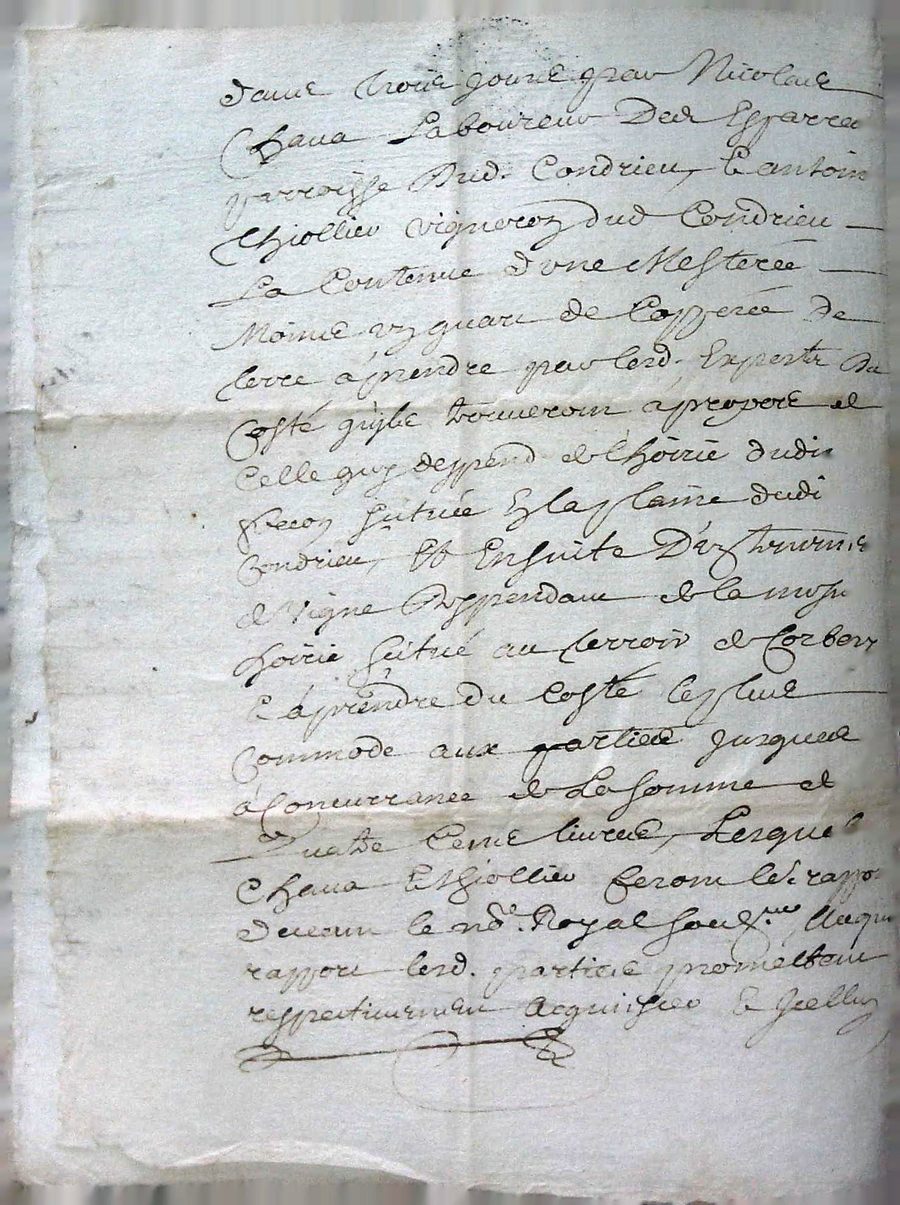 dans trois jours par Nicolas
Chana Laboureur Des Esparre
parroisse dud. Condrieu, & antoin
Thiollier vigneron dud Condrieu
La Contenue d'une Mesterée
Moins un quart de Copperée de
terre à prendre par lesd. Experts du
Costé qu'ils trouveront à propore et
Celle quy deppend de l'hoirie dudi
situéé En la plaine dudi
Condrieu, Et Ensuite D'un
de Vigne Deppendant de la mesm
hoirie situé au terroir de Corbery
& à prendre du Costé le plus
Commode aux parties jusques
à Concurrance de La somme de
Quatre Cents livres, Lesquel
Chana & Thiollier feront le. rappo
devant le no.re Royal sous.né Auqu
rapport lesd. parties promettent
respectivement Acquiscer & Icelluy